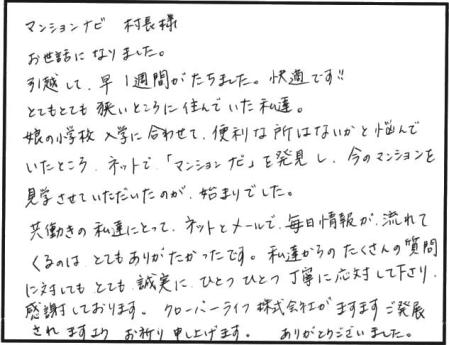 マンションナビ 村長様
お世話になりました。
引越して、早1週間がたちました。快適です!!
とてもとても狭いところに住んでいた私達。
娘の小学校入学に合わせて、便利な所はないかと悩んで
いたところ、ネットで、「マンションナビ」を発見し、今のマンションを
見学させていただいたのが、始まりでした。
共働きの私達にとって、ネットとメールで、毎日情報が、流れて
くるのは、とてもありがたかったです。私達からのたくさんの質問
に対してもとても、誠実に、ひとつひとつ丁寧に応対して下さり、
感謝しております。クローバーライフ株式会社がますますご発展
されますよう お祈り申し上げます。 ありがとうございました。